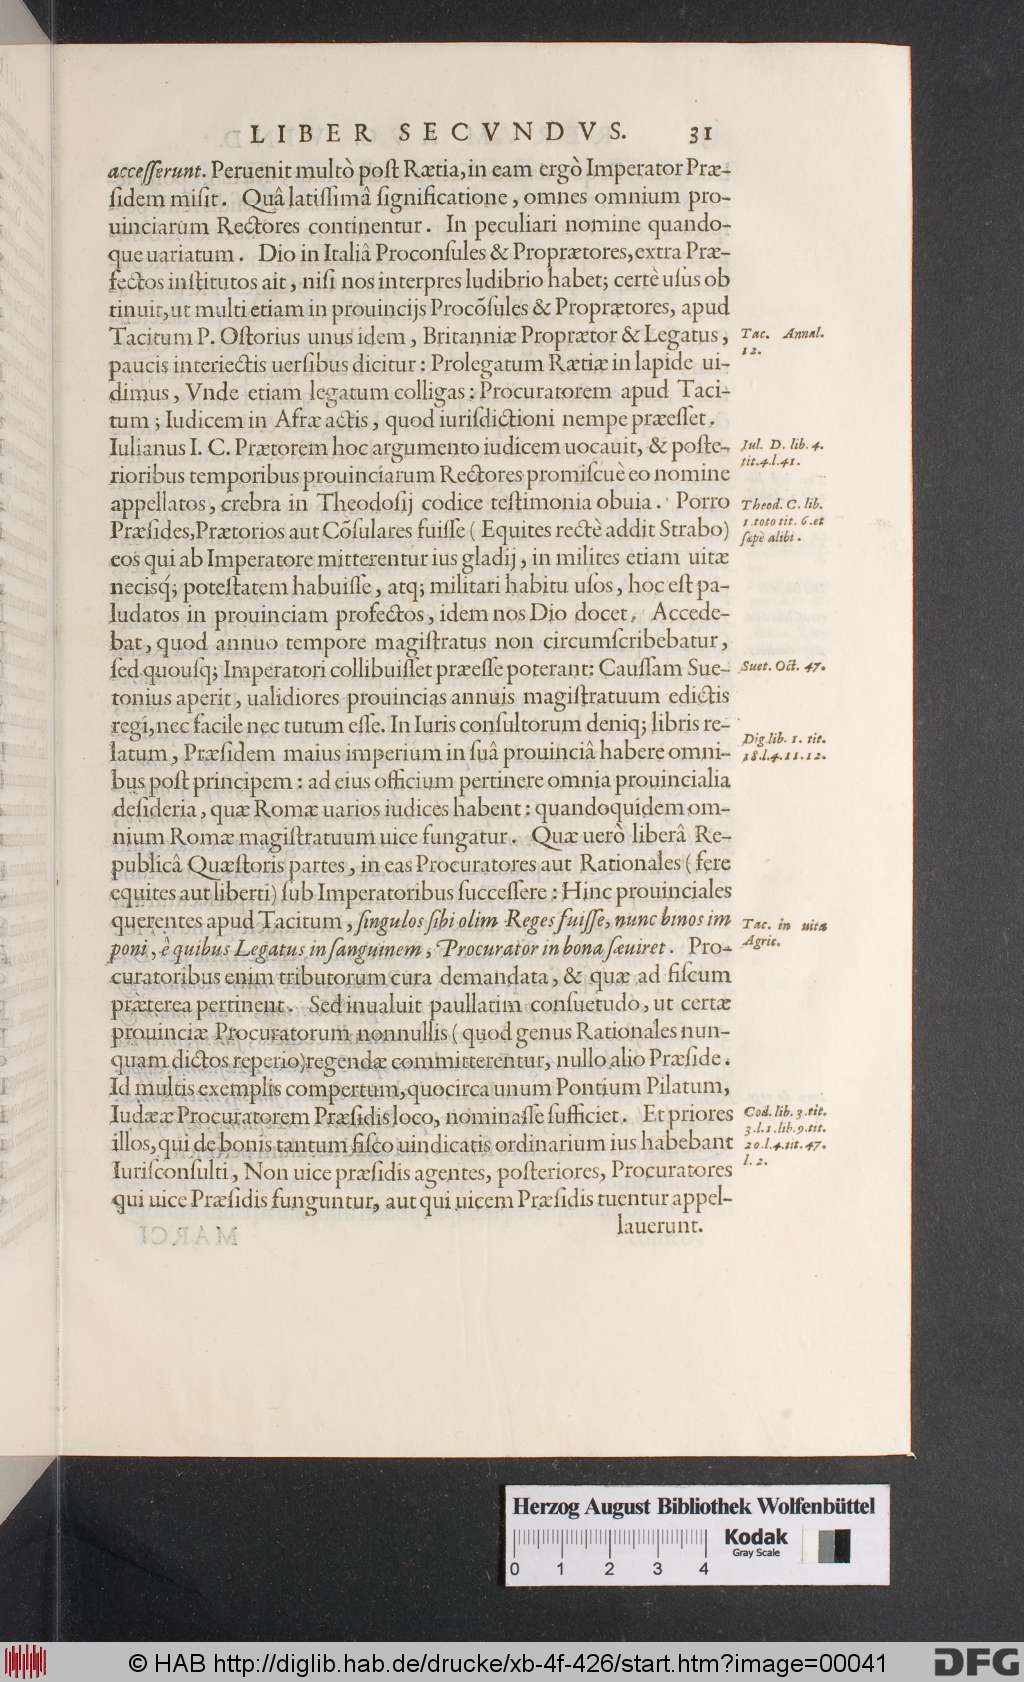 LIBER SECVNDVS. 31
accesſerunt. Peruenit multò poſt Rætia, in eam ergò Imperator Præ-
ſidem miſit. Quâ latiſſimâ ſignificatione, omnes omnium pro-
uinciarum Rectores continentur. In peculiari nomine quando-
que uariatum. Dio in Italiâ Proconſules & Proprætores, extra Præ-
fectos inſtitutos ait, niſi nos interpres ludibrio habet; certè uſus ob
tinuit, ut multi etiam in prouincijs Procõſules & Proprætores, apud
Tacitum P. Oſtorius unus idem, Britanniæ Proprætor & Legatus,
Tac. Annal.
12.
paucis interiectis uerſibus dicitur: Prolegatum Rætiæ in lapide ui-
dimus, Vnde etiam legatum colligas: Procuratorem apud Taci-
tum; Iudicem in Afræ actis, quod iuriſdictioni nempe præeſſet.
Iulianus I. C. Prætorem hoc argumento iudicem uocauit, & poſte-
Jul. D. lib. 4.
tit. 4. l. 41.
rioribus temporibus prouinciarum Rectores promiſcuè eo nomine
appellatos, crebra in Theodoſij codice teſtimonia obuia. Porro
Theod. C. lib.
1. toto tit. 6. et
ſæpè alibi.
Præſides, Prætorios aut Cõſulares fuiſſe (Equites rectè addit Strabo)
eos qui ab Imperatore mitterentur ius gladij, in milites etiam uitæ
necisq́; poteſtatem habuiſſe, atq; militari habitu uſos, hoc eſt pa-
ludatos in prouinciam profectos, idem nos Dio docet. Accede-
bat, quod annuo tempore magiſtratus non circumſcribebatur,
ſed quouſq; Imperatori collibuiſſet præeſſe poterant: Cauſſam Sue-
Suet. Oct. 47.
tonius aperit, ualidiores prouincias annuis magiſtratuum edictis
regi, nec facile nec tutum eſſe. In Iuris conſultorum deniq; libris re-
latum, Præſidem maius imperium in ſuâ prouinciâ habere omni-
Dig. lib. 1. tit.
18. l. 4. 11. 12.
bus poſt principem: ad eius officium pertinere omnia prouincialia
deſideria, quæ Romæ uarios iudices habent: quandoquidem om-
nium Romæ magiſtratuum uice fungatur. Quæ uerò liberâ Re-
publicâ Quæſtoris partes, in eas Procuratores aut Rationales (fere
equites aut liberti) ſub Imperatoribus ſucceſſere: Hinc prouinciales
querentes apud Tacitum, ſingulos ſibi olim Reges fuiſſe, nunc binos im
Tac. in uita
Agric.
poni, è quibus Legatus in ſanguinem, Procurator in bona ſæuiret. Pro-
curatoribus enim tributorum cura demandata, & quæ ad fiſcum
præterea pertinent. Sed inualuit paullatim conſuetudo, ut certæ
prouinciæ Procuratorum nonnullis (quod genus Rationales nun-
quam dictos reperio) regendæ committerentur, nullo alio Præſide.
Id multis exemplis compertum, quocirca unum Pontium Pilatum,
Iudææ Procuratorem Præſidis loco, nominaſſe ſufficiet. Et priores
Cod. lib. 3. tit.
3. l. 1. lib. 9. tit.
20. l. 4. tit. 47.
l. 2.
illos, qui de bonis tantum fiſco uindicatis ordinarium ius habebant
Iuriſconſulti, Non uice præſidis agentes, poſteriores, Procuratores
qui uice Præſidis funguntur, aut qui uicem Præſidis tuentur appel-
lauerunt.
Herzog August Bibliothek Wolfenbüttel
0 1 2 3 4
Kodak
Gray Scale
© HAB http://diglib.hab.de/drucke/xb-4f-426/start.htm?image=00041
DFG